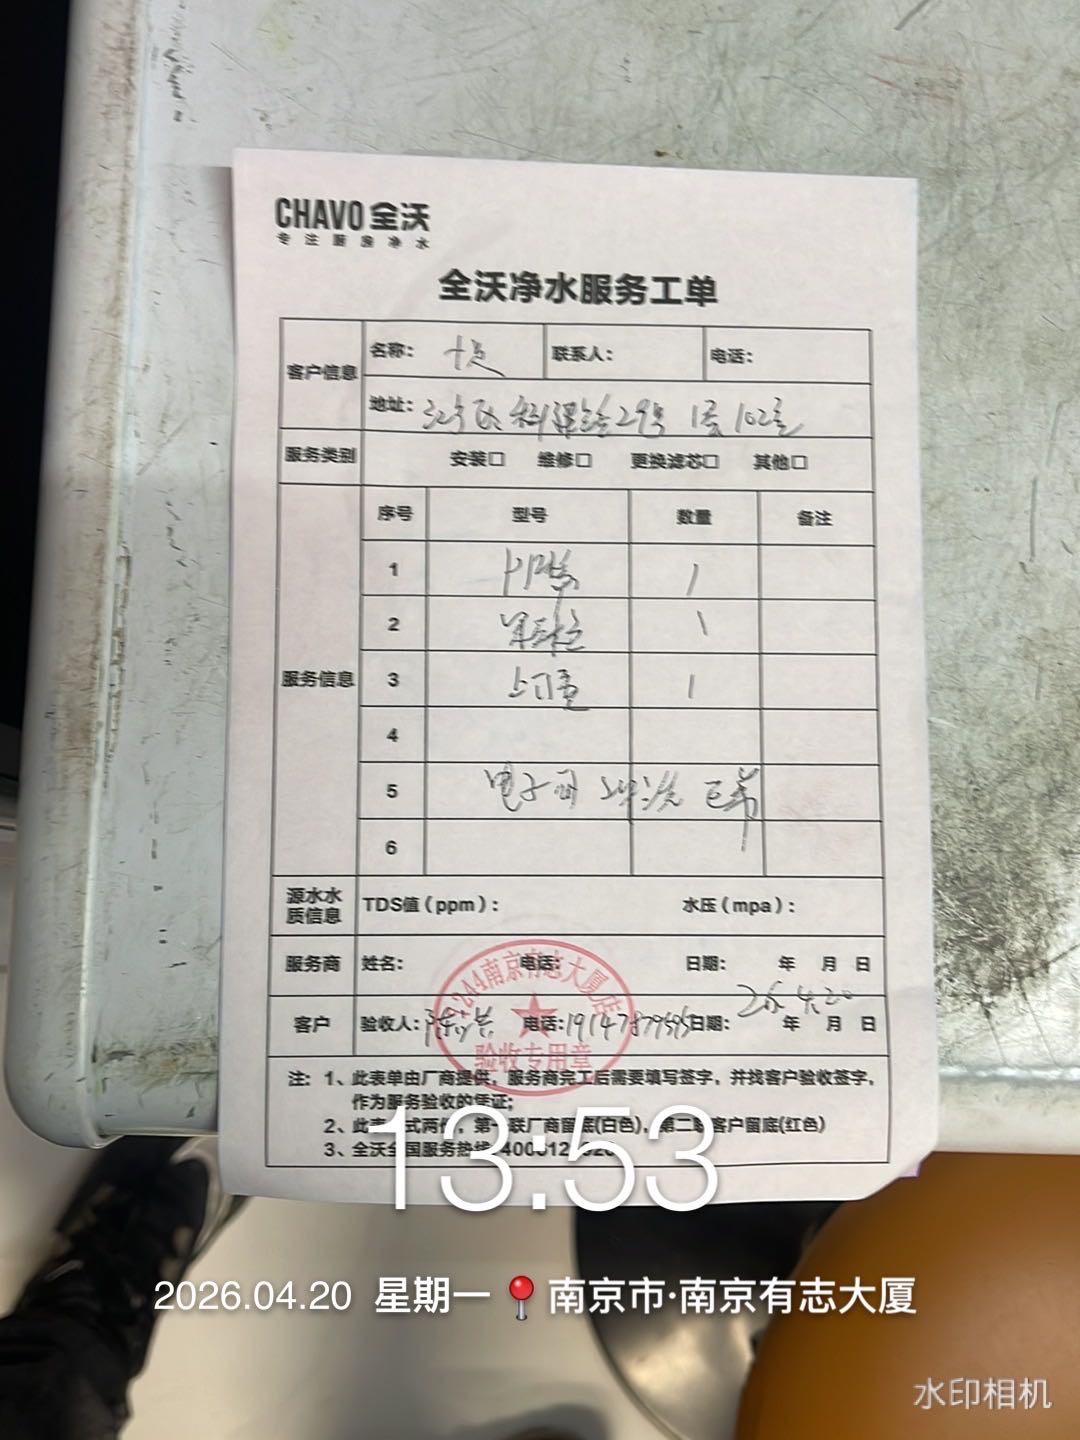 CHAVO 全沃
专注厨房净水
全沃净水服务工单
客户信息 名称: 联系人: 电话:
地址: 29号 1层102室
服务类别 安装□ 维修□ 更换滤芯□ 其他□
服务信息 序号 型号 数量 备注
1 PP棉 1
2 1
3 上门费 1
4
5 电子阀 清洗
6
源水水质信息 TDS值(ppm): 水压(mpa):
服务商 姓名: 电话: 日期: 年 月 日
客户 验收人: 电话: 日期: 26.4.20 年 月 日
南京有志大厦店
验收专用章
注: 1、此表单由厂商提供,服务商完工后需要填写签字,并找客户验收签字,
作为服务验收的凭证;
2、此表 式两份,第一联厂商留底(白色),第二联客户留底(红色)
3、全沃全国服务热线
13:53
2026.04.20 星期一 南京市·南京有志大厦
水印相机